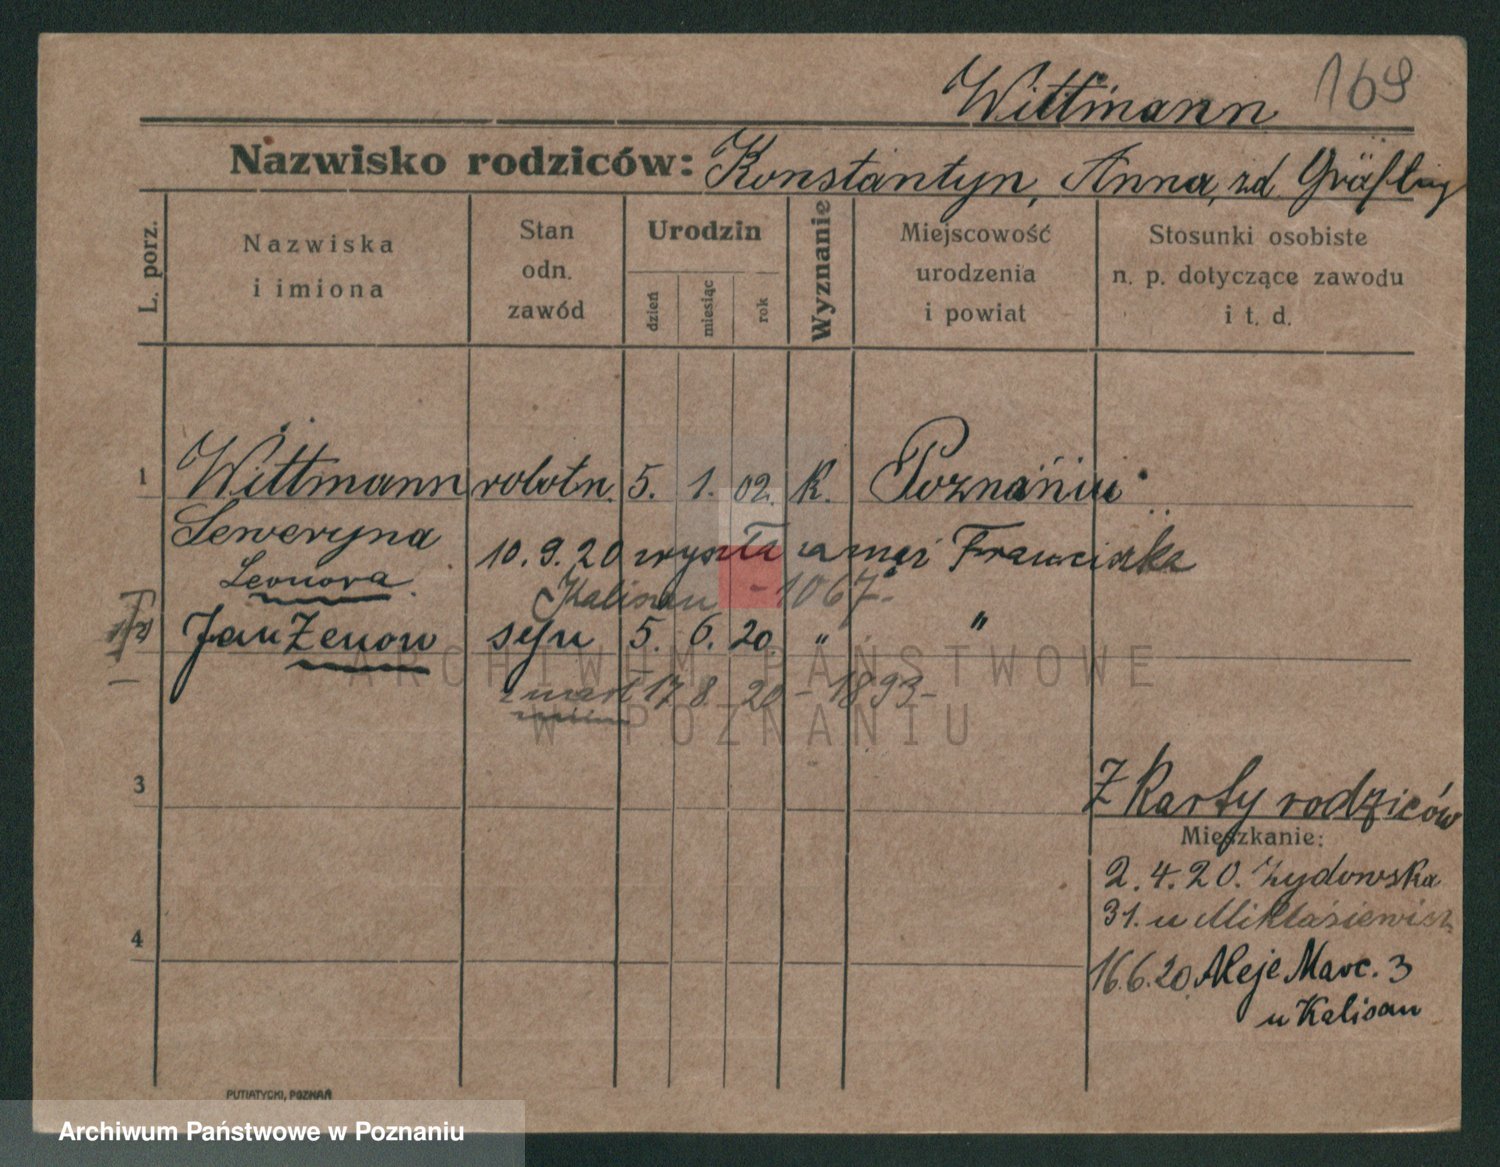 Wittmann 169
Nazwisko rodziców: Konstantyn, Anna, zd. Gräfling
L. porz.
Nazwiska
i imiona
Stan
odn.
zawód
Urodzin
dzień
miesiąc
rok
Wyznanie
Miejscowość
urodzenia
i powiat
Stosunki osobiste
n. p. dotyczące zawodu
i t. d.
1 Wittmann robotn. 5. 1. 02. K. Poznaniu
Seweryna
10.9.20 wyszła za mąż Franciszka
Leonora
Kalisan - 1067 -
Jan Zenon syn 5. 6. 20. " "
zmarł 17 8. 20 - 1893 -
ARCHIWUM PAŃSTWOWE
W POZNANIU
3
Z Karty rodziców
Mieszkanie:
2.4.20. Żydowska
31. u Mikłasiewicz
4
16.6.20. Aleje Marc. 3
u Kalisan
PUTIATYCKI, POZNAŃ
Archiwum Państwowe w Poznaniu